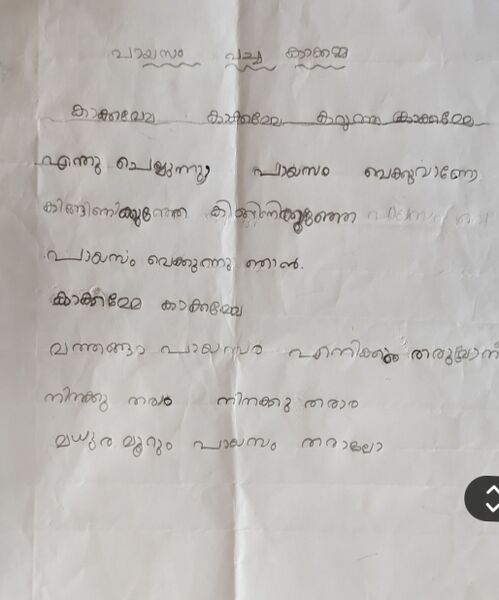 പായസം വച്ച കാക്കമ്മ
കാക്കമ്മേ കാക്കമ്മേ കറുത്ത കാക്കമ്മേ
എന്തു ചെയ്യുന്നു, പായസം വെക്കുവാണോ
കിങ്ങിണിക്കുഞ്ഞേ കിങ്ങിണിക്കുഞ്ഞേ
പായസം വെക്കുന്നു ഞാൻ.
കാക്കമ്മേ കാക്കമ്മേ
മത്തങ്ങാ പായസം എനിക്കും തരുമോ
നിനക്കു തരാം നിനക്കു തരാം
മധുരമൂറും പായസം തരാലോ